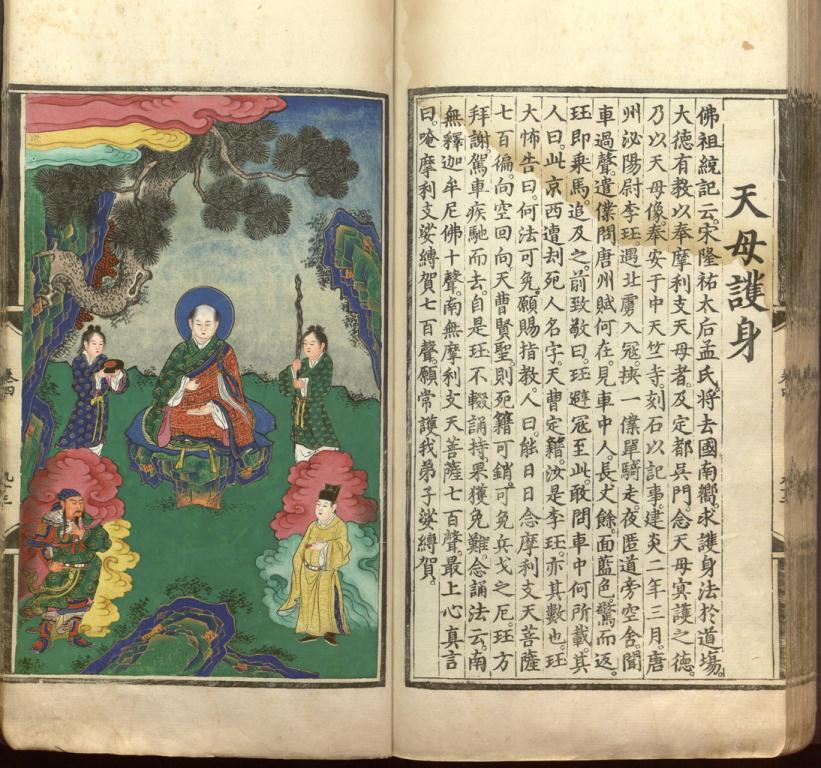 天母護身
佛祖統記云。宋隆祐太后孟氏。將去國南嚮。求護身法於道場。
大德有教以奉摩利支天母者。及定都吳門。念天母冥護之德。
乃以天母像。奉安于中天竺寺。刻石以記事。建炎二年三月。唐
州泌陽尉李珏。遇北虜入冦。挾一僕單騎走。夜匿道旁空舍。聞
車過聲。遣僕問唐州賊何在。見車中人。長丈餘。面藍色。驚而返。
珏即乘馬。追及之。前致敬曰。珏避冦至此。敢問車中何所載。其
人曰。此京西遭刦死人名字。天曹定籍。汝是李珏。亦其數也。珏
大怖告曰。何法可免。願賜指教。人曰。能日日念摩利支天菩薩
七百徧。向空回向天曹賢聖。則死籍可銷。可免兵戈之厄。珏方
拜謝。駕車疾馳而去。自是珏不輟誦持。果獲免難。念誦法云。南
無釋迦牟尼佛十聲。南無摩利支天菩薩七百聲。最上心真言
曰。唵摩利支娑縛賀七百聲。願常護我弟子娑縛賀。
卷四